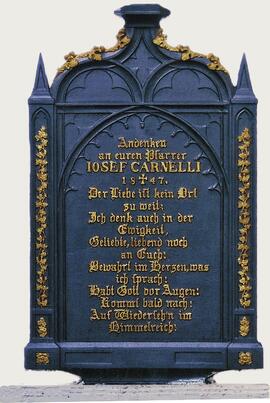 Andenken
an euren Pfarrer
IOSEF CARNELLI
1847.
Der Liebe ist kein Ort
zu weit;
Ich denk auch in der
Ewigkeit,
Geliebte, liebend noch
an Euch:
Bewahrt im Herzen, was
ich sprach:
Habt Gott vor Augen:
Kommt bald nach:
Auf Wiedersehn im
Himmelreich: